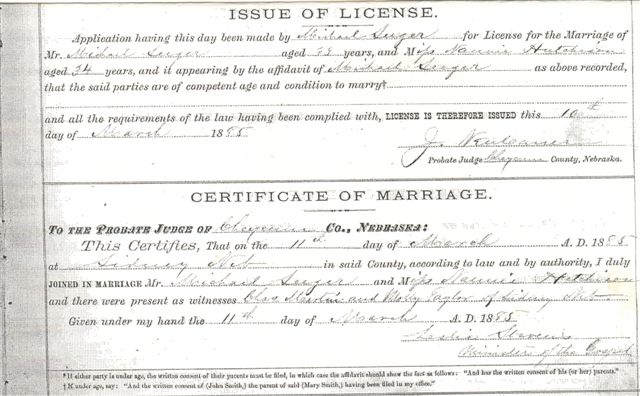 ISSUE OF LICENSE.
Application having this day been made by Michael Seeger for License for the Marriage of
Mr. Michael Seeger aged years, and Miss Nannie Hutchison
aged 34 years, and it appearing by the affidavit of Michael Seeger as above recorded,
that the said parties are of competent age and condition to marry†
and all the requirements of the law having been complied with, LICENSE IS THEREFORE ISSUED this 10th
day of March 1885
J.
Probate Judge Cheyenne County, Nebraska.
CERTIFICATE OF MARRIAGE.
TO THE PROBATE JUDGE OF Cheyenne CO., NEBRASKA:
This Certifies, That on the 11th day of March A. D. 1885
at Sidney Neb in said County, according to law and by authority, I duly
JOINED IN MARRIAGE Mr. Michael Seeger and Miss Nannie Hutchison
and there were present as witnesses Martin and Taylor of Sidney Neb
Given under my hand the 11th day of March A. D. 1885
Leslie Stevens
Minister of the Gospel
*If either party is under age, the written consent of their parents must be filed, in which case the affidavit should show the fact as follows: "And has the written consent of his (or her) parents."
†If under age, say: "And the written consent of (John Smith,) the parent of said (Mary Smith,) having been filed in my office."